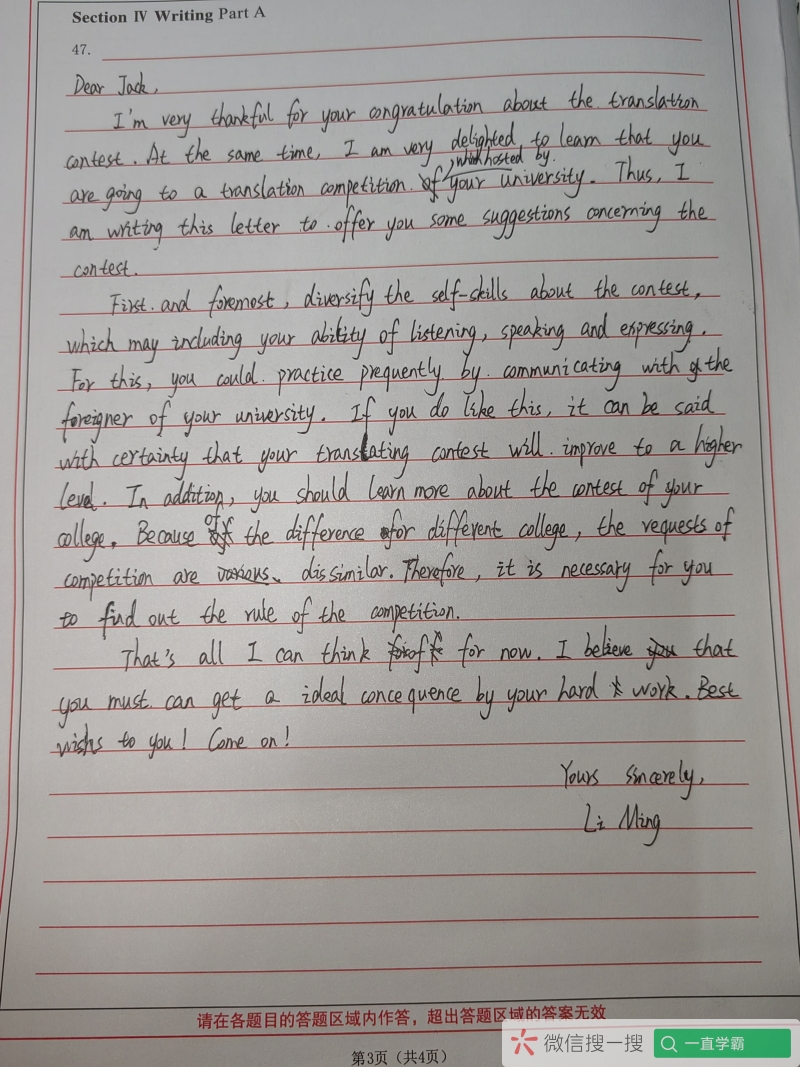 Section Ⅳ Writing Part A
47.
Dear Jack,
I'm very thankful for your congratulation about the translation
contest. At the same time, I am very delighted to learn that you
, which hosted by
are going to a translation competition your university. Thus, I
am writing this letter to offer you some suggestions concerning the
contest.
First and foremost, diversify the self-skills about the contest,
which may including your ability of listening, speaking and expressing.
For this, you could practice prequently by communicating with the
foreigner of your university. If you do like this, it can be said
with certainty that your translating contest will improve to a higher
level. In addition, you should learn more about the contest of your
college. Because of the difference for different college, the requests of
competition are dissimilar. Therefore, it is necessary for you
to find out the rule of the competition.
That's all I can think of for now. I believe that
you must can get a ideal concequence by your hard work. Best
wishs to you! Come on!
Yours sincerely,
Li Ming
请在各题目的答题区域内作答，超出答题区域的答案无效
第3页（共4页）
微信搜一搜
一直学霸